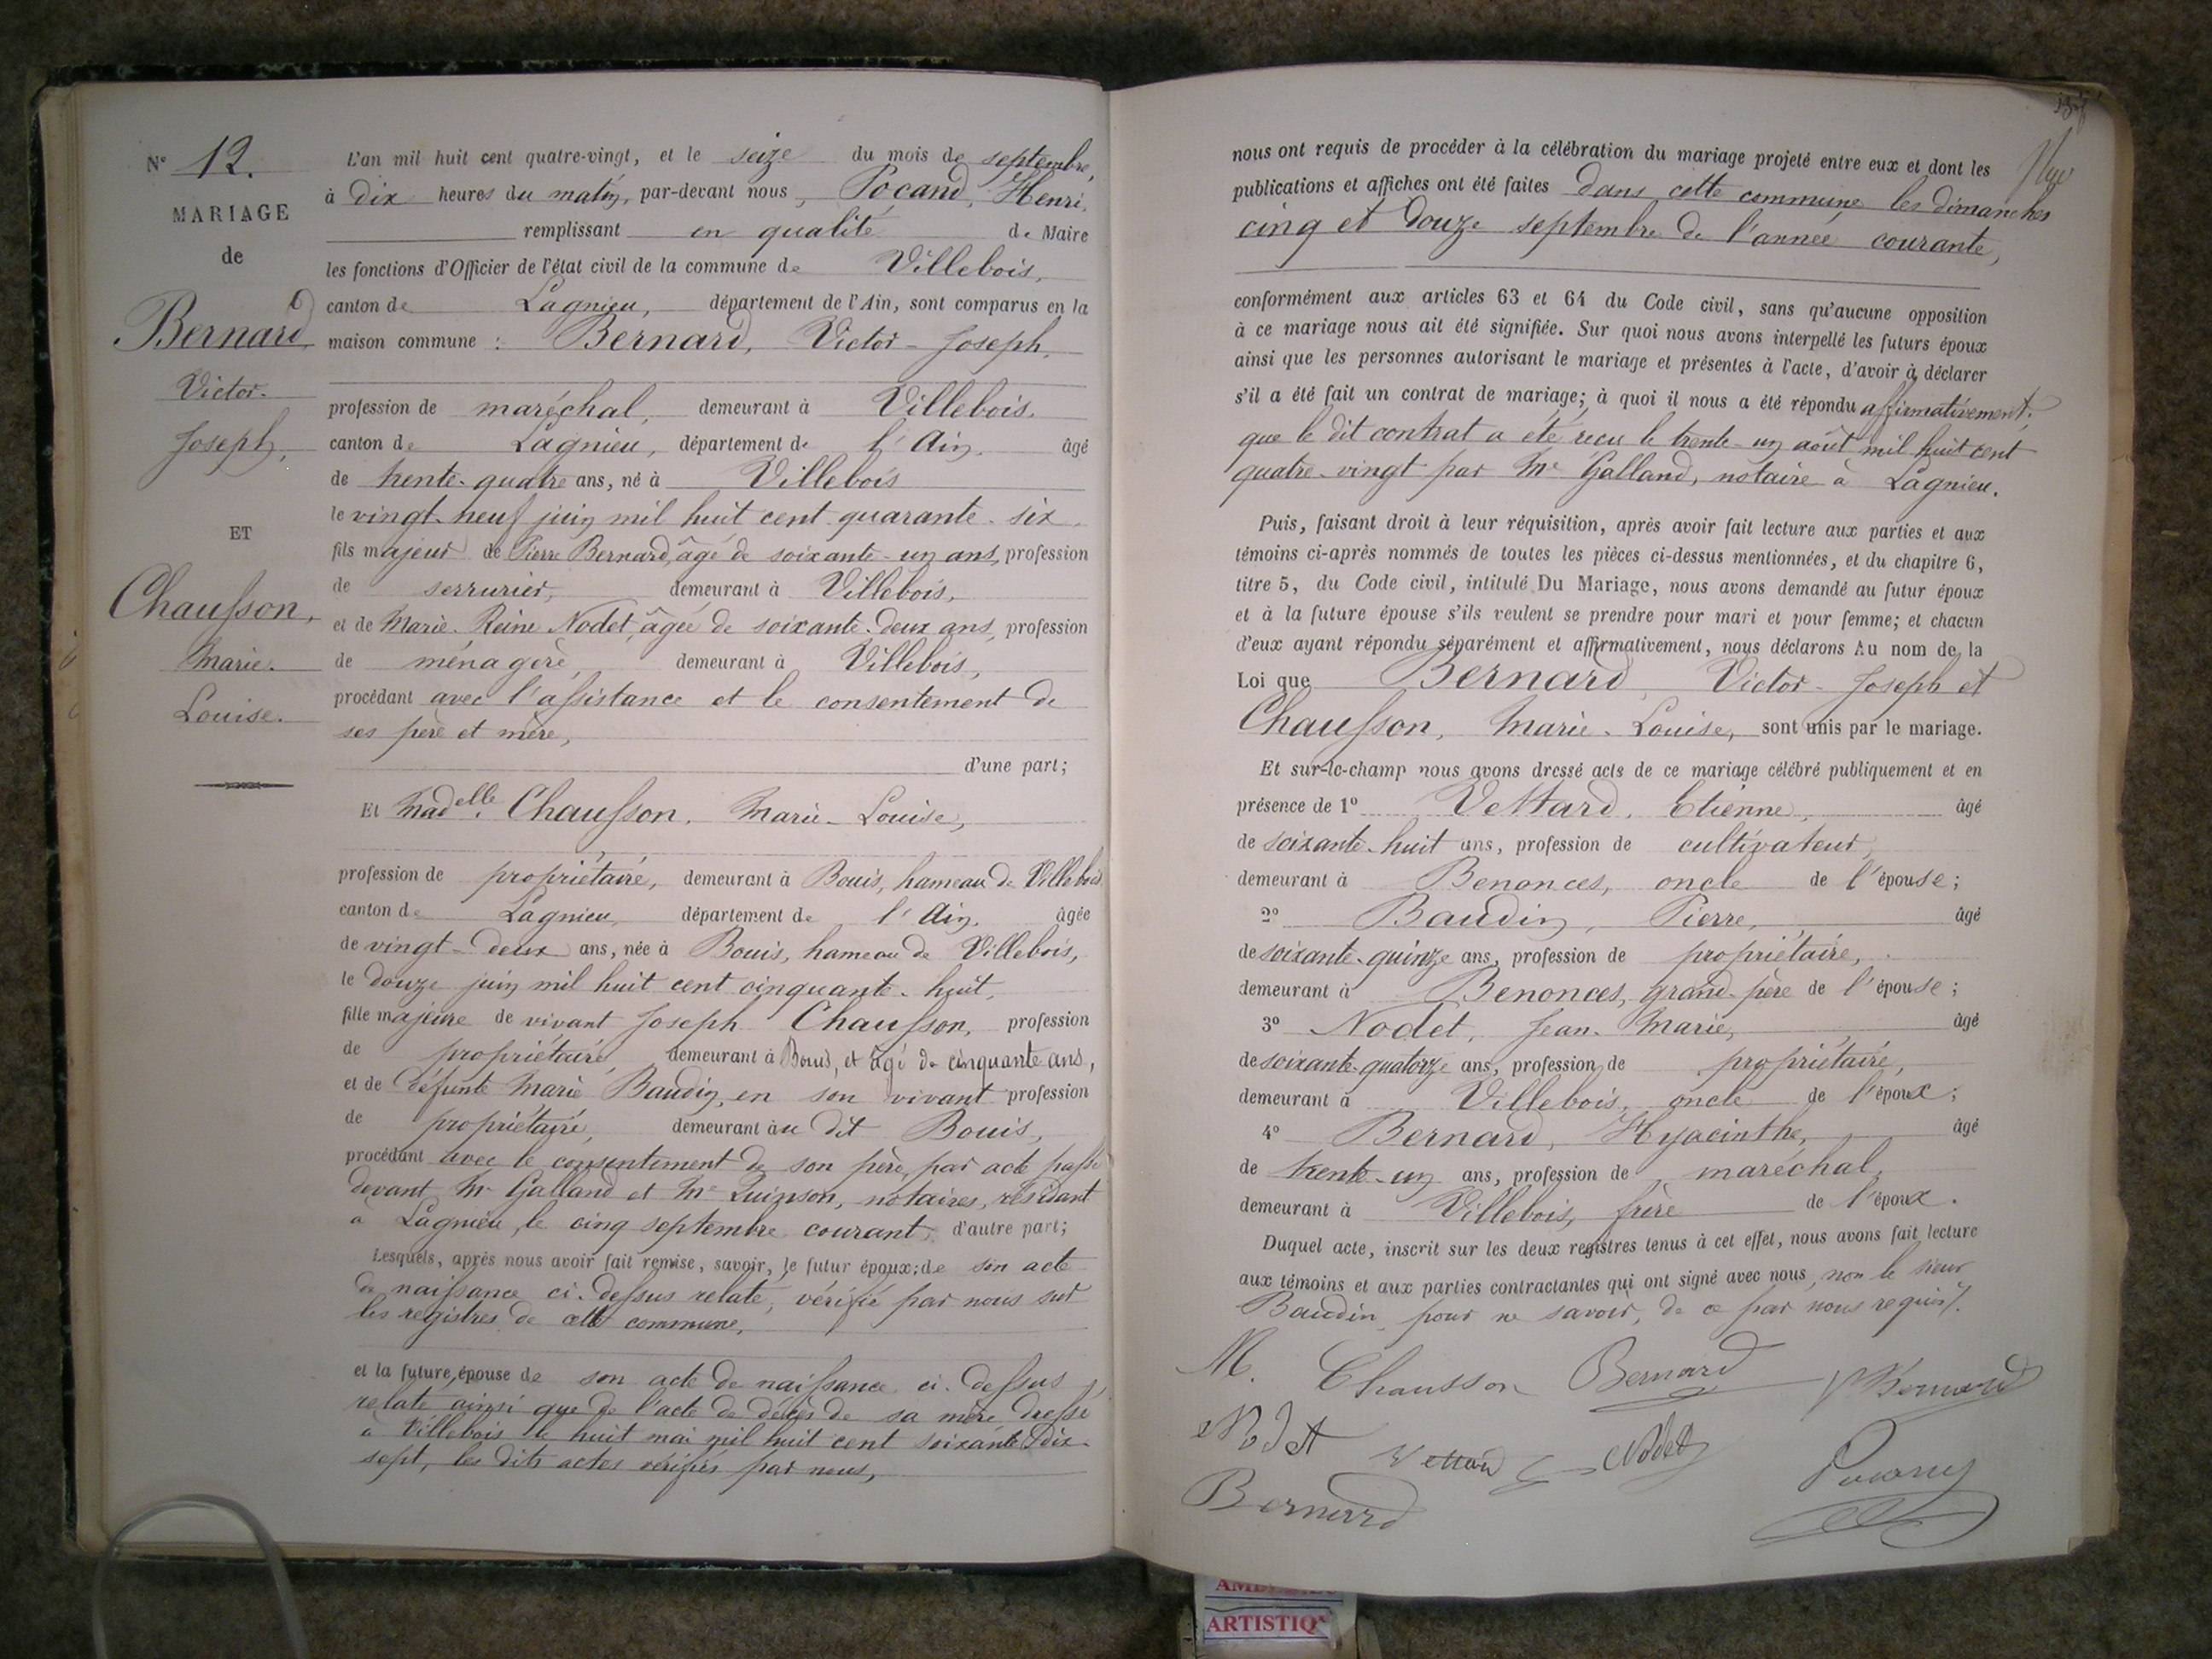 N° 12.
MARIAGE
de
Bernard
Victor-
Joseph,
ET
Chausson,
Marie-
Louise.
L'an mil huit cent quatre-vingt, et le seize du mois de septembre,
à dix heures du matin, par-devant nous, Pocand, Henri,
remplissant en qualité de Maire
les fonctions d'Officier de l'état civil de la commune de Villebois,
canton de Lagnieu, département de l'Ain, sont comparus en la
maison commune : Bernard, Victor-Joseph,
profession de maréchal, demeurant à Villebois,
canton de Lagnieu, département de l'Ain, âgé
de trente-quatre ans, né à Villebois
le vingt-neuf juin mil huit cent quarante-six,
fils majeur de Pierre Bernard, âgé de soixante-un ans, profession
de serrurier, demeurant à Villebois,
et de Marie-Reine Nodet, âgée de soixante-deux ans, profession
de ménagère, demeurant à Villebois,
procédant avec l'assistance et le consentement de
ses père et mère,
d'une part;
Et Madelle. Chausson, Marie-Louise,
profession de propriétaire, demeurant à Bouis, hameau de Villebois
canton de Lagnieu, département de l'Ain, âgée
de vingt-deux ans, née à Bouis, hameau de Villebois,
le douze juin mil huit cent cinquante-huit,
fille majeure de vivant Joseph Chausson, profession
de propriétaire, demeurant à Bouis, et âgé de cinquante ans,
et de défunte Marie Baudin, en son vivant profession
de propriétaire, demeurant au dit Bouis,
procédant avec le consentement de son père, par acte passé
devant Me Galland et Me Quinson, notaires, résidant
à Lagnieu, le cinq septembre courant, d'autre part;
Lesquels, après nous avoir fait remise, savoir, le futur époux; de son acte
de naissance ci-dessus relaté, vérifié par nous sur
les registres de cette commune,
et la future épouse de son acte de naissance ci-dessus
relaté ainsi que de l'acte de décès de sa mère dressé
à Villebois le huit mai mil huit cent soixante dix-
sept, les dits actes vérifiés par nous,
nous ont requis de procéder à la célébration du mariage projeté entre eux et dont les
publications et affiches ont été faites dans cette commune les dimanches
cinq et douze septembre de l'année courante,
conformément aux articles 63 et 64 du Code civil, sans qu'aucune opposition
à ce mariage nous ait été signifiée. Sur quoi nous avons interpellé les futurs époux
ainsi que les personnes autorisant le mariage et présentes à l'acte, d'avoir à déclarer
s'il a été fait un contrat de mariage; à quoi il nous a été répondu affirmativement;
que le dit contrat a été reçu le trente-un août mil huit cent
quatre-vingt par Me Galland, notaire à Lagnieu.
Puis, faisant droit à leur réquisition, après avoir fait lecture aux parties et aux
témoins ci-après nommés de toutes les pièces ci-dessus mentionnées, et du chapitre 6,
titre 5, du Code civil, intitulé Du Mariage, nous avons demandé au futur époux
et à la future épouse s'ils veulent se prendre pour mari et pour femme; et chacun
d'eux ayant répondu séparément et affirmativement, nous déclarons Au nom de la
Loi que Bernard Victor-Joseph et
Chausson, Marie-Louise, sont unis par le mariage.
Et sur-le-champ nous avons dressé acte de ce mariage célébré publiquement et en
présence de 1° Vettard, Etienne, âgé
de soixante-huit ans, profession de cultivateur,
demeurant à Benonces, oncle de l'épouse;
2° Baudin, Pierre, âgé
de soixante-quinze ans, profession de propriétaire,
demeurant à Benonces, grand-père de l'épouse;
3° Nodet, Jean-Marie, âgé
de soixante-quatorze ans, profession de propriétaire,
demeurant à Villebois, oncle de l'époux;
4° Bernard, Hyacinthe, âgé
de trente-un ans, profession de maréchal,
demeurant à Villebois, frère de l'époux.
Duquel acte, inscrit sur les deux registres tenus à cet effet, nous avons fait lecture
aux témoins et aux parties contractantes qui ont signé avec nous, non le sieur
Baudin pour ne savoir, de ce par nous requis.
M. Chausson Bernard Bernard
Nodet Vettard Nodet
Bernard Pocand
ARTISTIQ